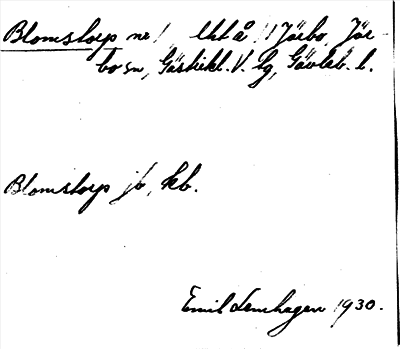 Blomstorp nr 1 Uttå 1 Järbo, Jär-
bo sn, Gästrikl. V. tg, Gävleb. l.
Blomstorp jb, kb.
Emil Lenhagen 1930.